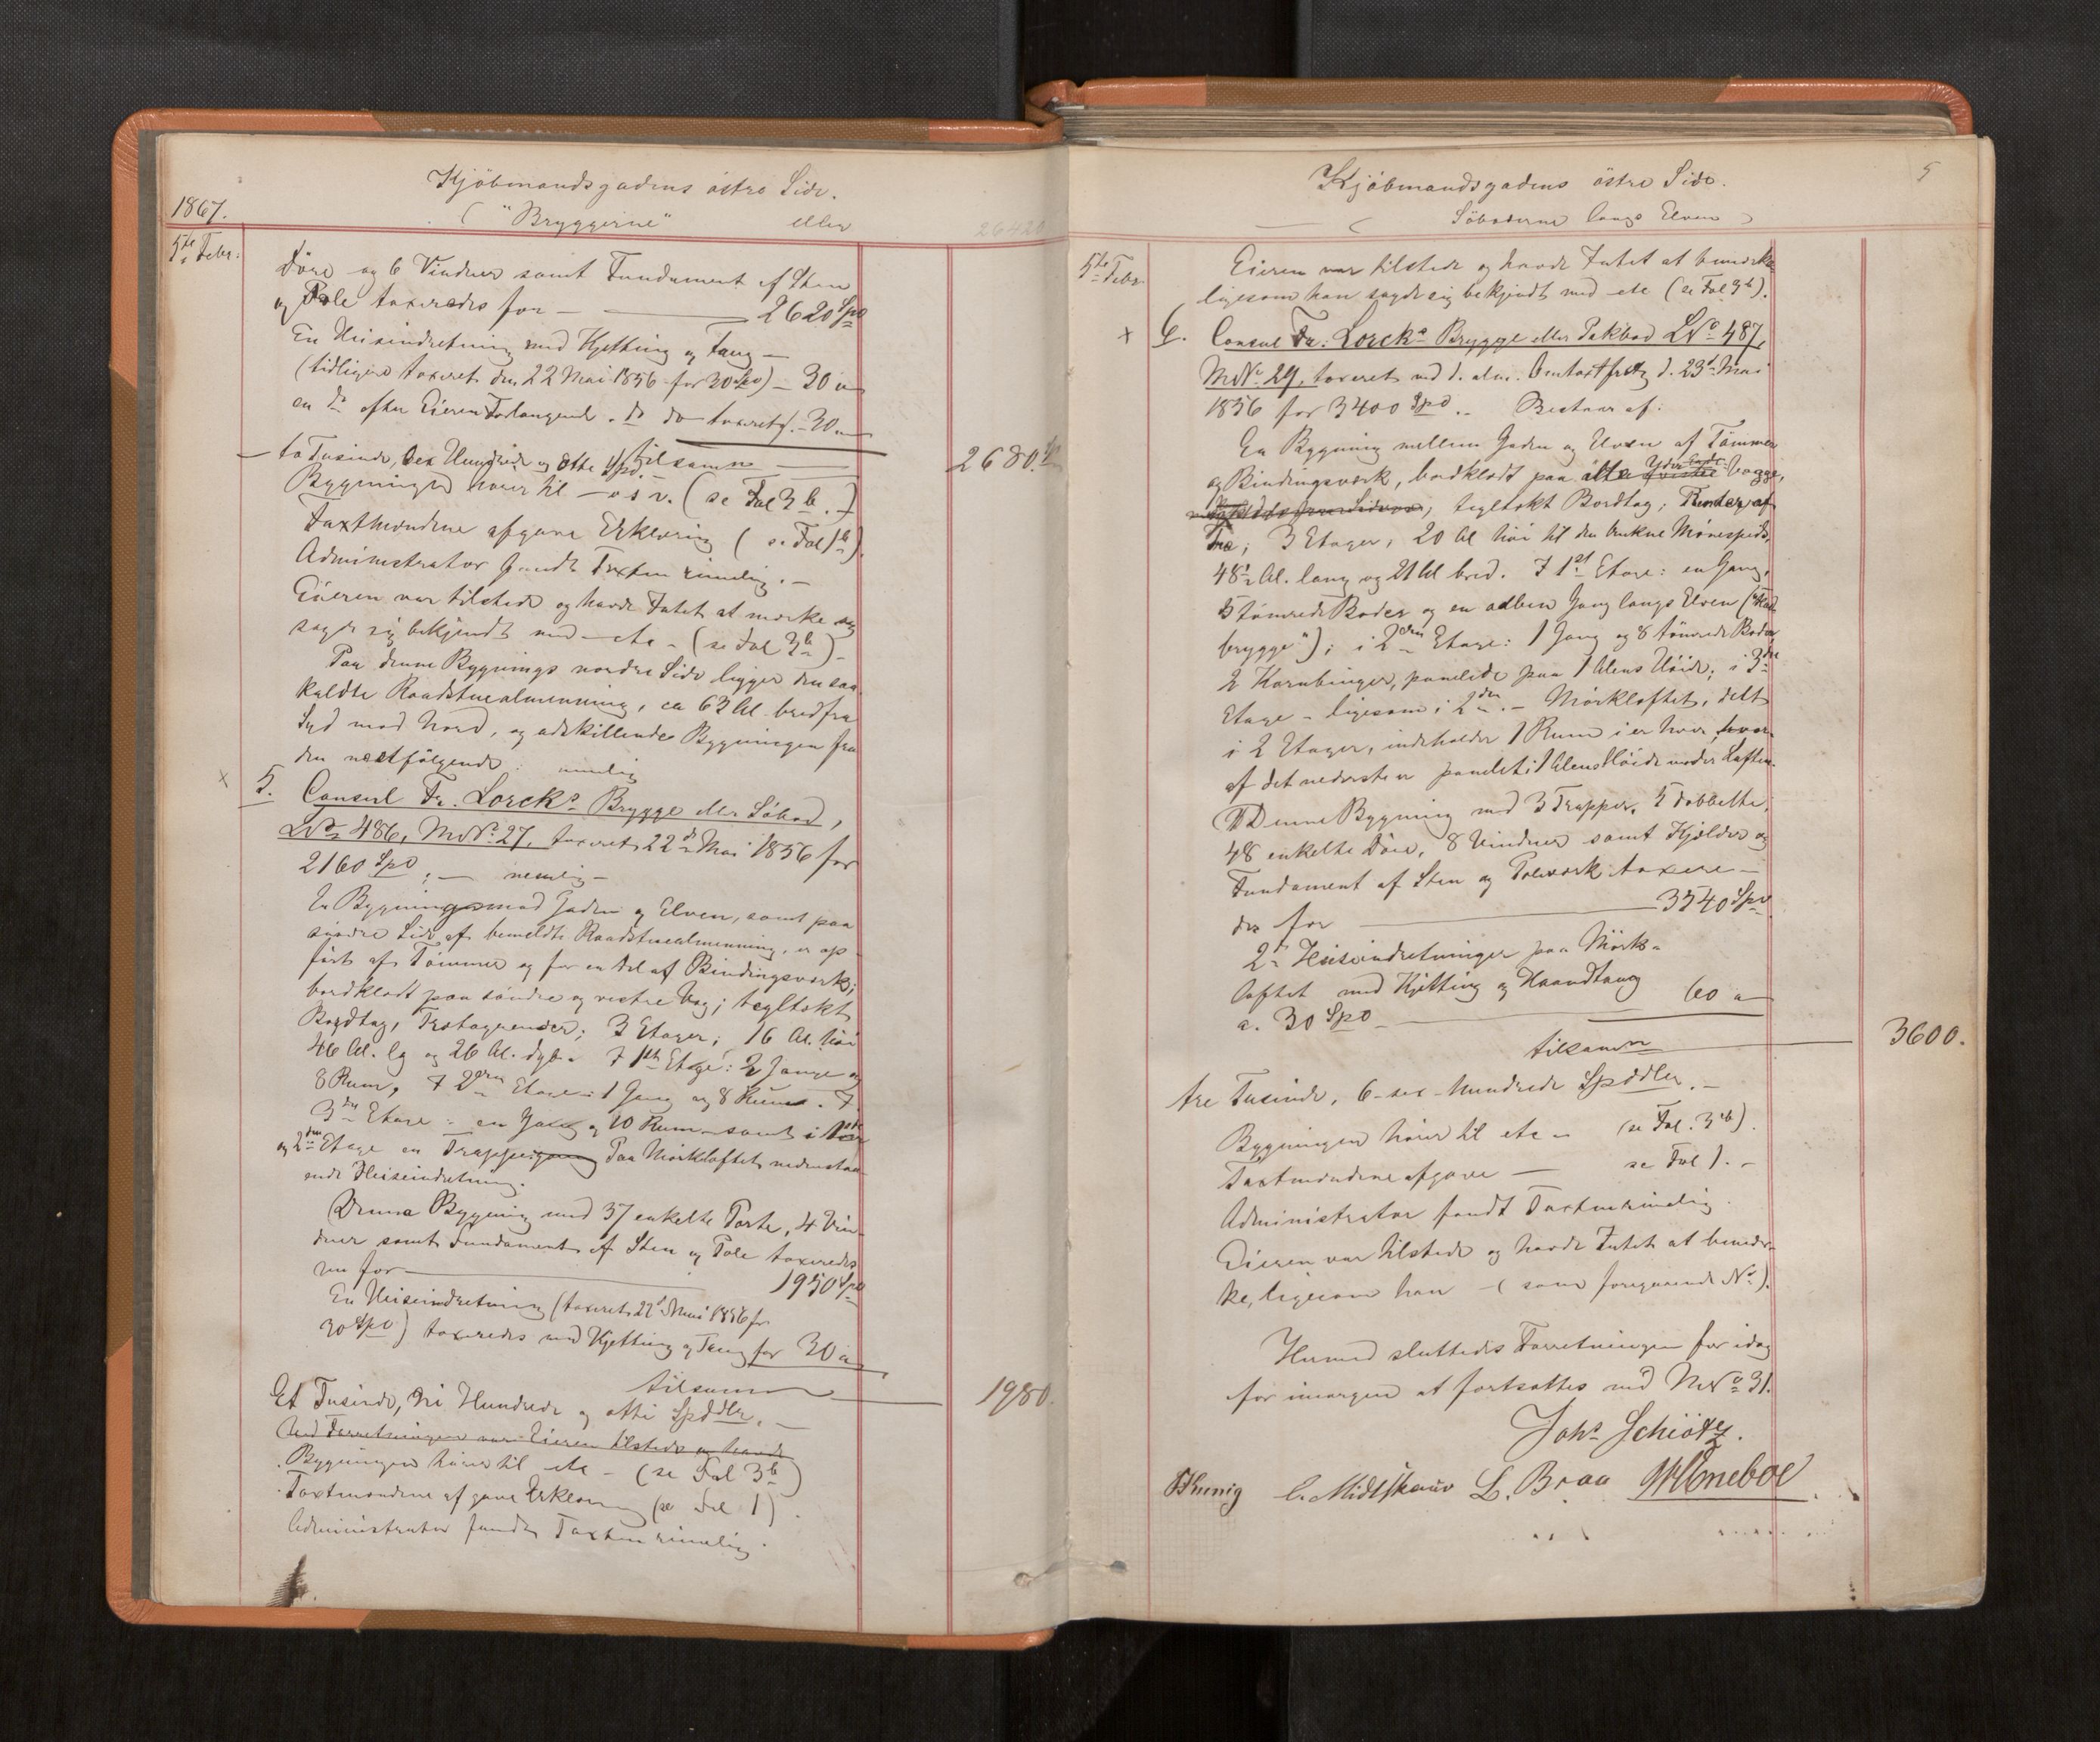 Kjöbmandsgadens östre Side.
1867.
("Bryggerne" eller
26420
5te Febr.
Döre og 6 Vinduer samt Fundament af Sten
og Pæle taxeredes for — 2620 Spd
En Heiseindretning med Kjetting og Taug —
(tidligere taxeret den 22 Mai 1856 for 30 Spd) — 30 "
en do efter Eieren Forlangend. do do taxeret f. — 30 "
tilsamn
— to Tusinde, Sex Hundrede og otte Spd. — 2680. Spd
Bygningen hører til — o s v. (se Fol 3 b. )
Taxtmændene afgave Erklæring ( se Fol 1b)
Administrator fandt Taxten rimelig. —
Eieren var tilstede og havde Intet at mærke og
sagde sig bekjendt med — etc — (se Fol 3b) —
Paa denne Bygnings nordre Side ligger den saa-
kaldte Raadstuealmenning, ca 63 Al. bred fra
Syd mod Nord, og adskillende Bygningen fra
den næstfølgende: nemlig
x 5. Consul Fr. Lorcks Brygge eller Söbod,
LNo 486, MNo 27, taxeret 22de Mai 1856 for
2160 Spd : — nemlig —
En Bygning mod Gaden og Elven, samt paa
söndre Side af bemeldte Raadstuealmenning, er op-
fört af Tömmer og for en Del af Bindingsverk;
bordklædt paa söndre og vestre Væg; tegltækt
Bordtag, Trætagrender; 3 Etager; 16 Al. höi
46 Al. lg og 26 Al. dyb. I 1ste Etage: 2 Gange og
8 Rum, I 2den Etage: 1 Gang og 8 Rum. I
3die Etage: en Gang og 10 Rum — samt i 1ste
og 2den Etage en Trappegang Paa Mörkloftet nedenstaa-
ende Heiseindretning.
Denne Bygning med 37 enkelte Porte, 4 Vin-
duer samt Fundament af Sten og Pæle taxeredes
nu for — 1950 Spd
En Heiseindretning (taxeret 22d Mai 1856 for
30 Spd) taxeredes med Kjetting og Taug for 30 "
tilsamn
Et Tusinde, Ni Hundrede og otti Spddlr. — 1980.
Ved Forretningen var Eieren tilstede og havde
Bygningen hører til etc — (se Fol 3b)
Taxtmændene afgave Erklæring (se Fol 1)
Administrator fandt Taxten rimelig.
Kjöbmandsgadens östre Side.
5
( Söboderne langs Elven )
5te Febr.
Eieren var tilstede og havde Intet at bemærke
ligesom han sagde sig bekjendt med etc (se Fol 3b).
x 6. Consul Fr. Lorcks Brygge eller Pakbod LNo 487,
MNo 29, taxeret ved d. alm. Omtaxtfretg d. 23d Mai
1856 for 3400 Spd. — Bestaar af:
En Bygning mellem Gaden og Elven af Tömmer
og Bindingsværk, bordklædt paa alle Vægge,
tegltækt Bordtag; Render af
Træ; 3 Etager, 20 Al höi til den Mönespids,
48½ Al. lang og 21 Al bred. I 1ste Etage: en Gang,
5 tömrede Boder og en aaben Gang langs Elven ("Kad-
brygge"); i 2den Etage: 1 Gang og 8 tömrede Boder
2 Kornbinger, panelede paa 1 Alens Höide; i 3die
Etage — ligesom i 2den. — Mörkloftet, delt
i 2 Etager, indeholder 1 Rum i er hver, hvor-
af det nederste er panelet i 1 Alens Höide under Loften.
Denne Bygning med 3 Trapper, 5 dobbelte,
48 enkelte Döre, 8 Vinduer samt Kjælder og
Fundament af Sten og Pæleværk taxere-
des for — 3540 Spd
2 Heiseindretninger paa Mörk-
loftet med Kjetting og Haandtaug
a. 30 Spd — 60 "
tilsamn — 3600.
tre Tusinde, 6-sex-hundrede Spddlr. —
Bygningen hører til etc — (se Fol. 3b).
Taxtmændene afgave — se Fol 1. —
Administrator fandt Taxten rimelig.
Eieren var tilstede og havde Intet at bemær-
ke, ligesom han — (som foregaaende No).
Hermed sluttedes Forretningen for idag
for imorgen at fortsættes ved MNo 31.
Johs Schiötz.
C. Midelfhauv L. Braa